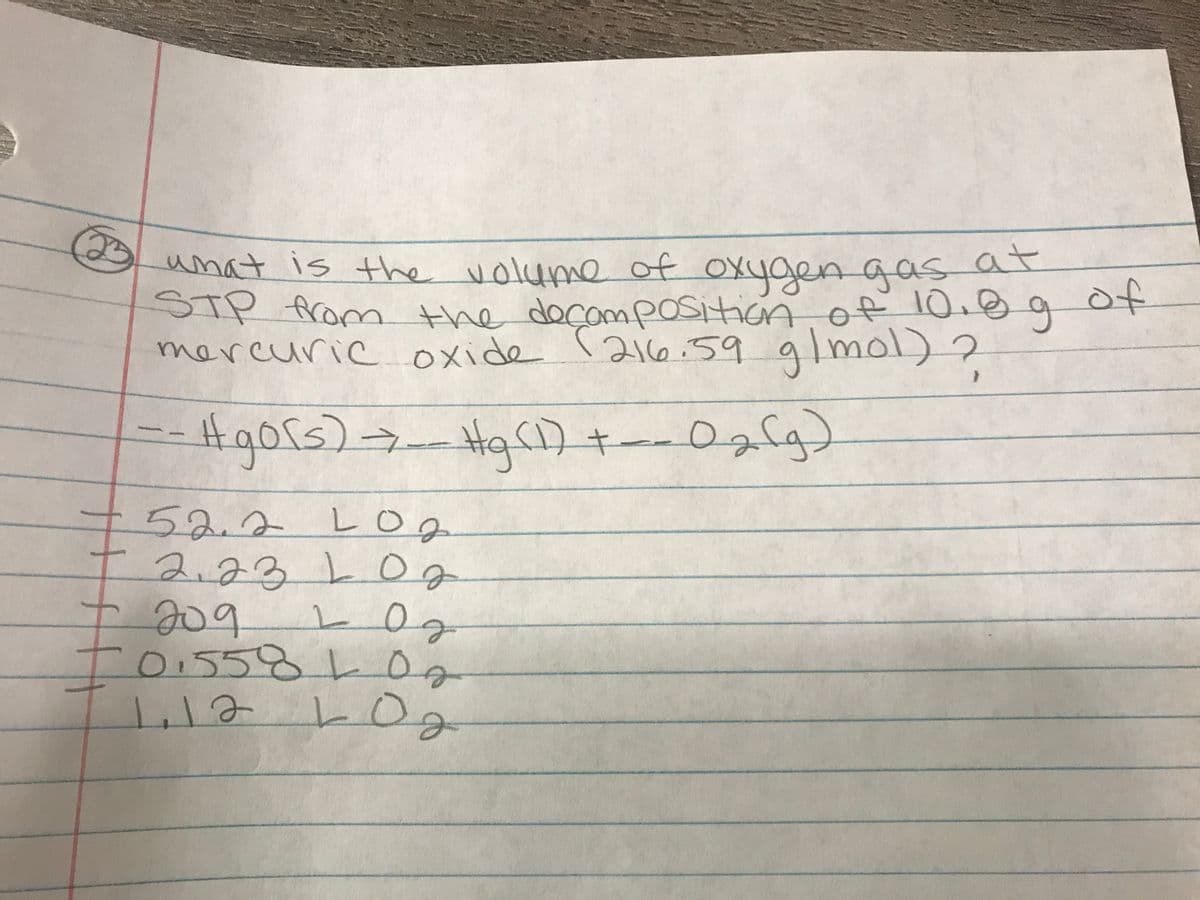 23 what is the volume of oxygen gas at
STP from the decomposition of 10.8 g of
mercuric oxide (216.59 g/mol)?
-- HgO(s) → -- Hg(l) + -- O2(g)
- 52.2 L O2
- 2.23 L O2
- 209 L O2
- 0.558 L O2
- 1.12 L O2